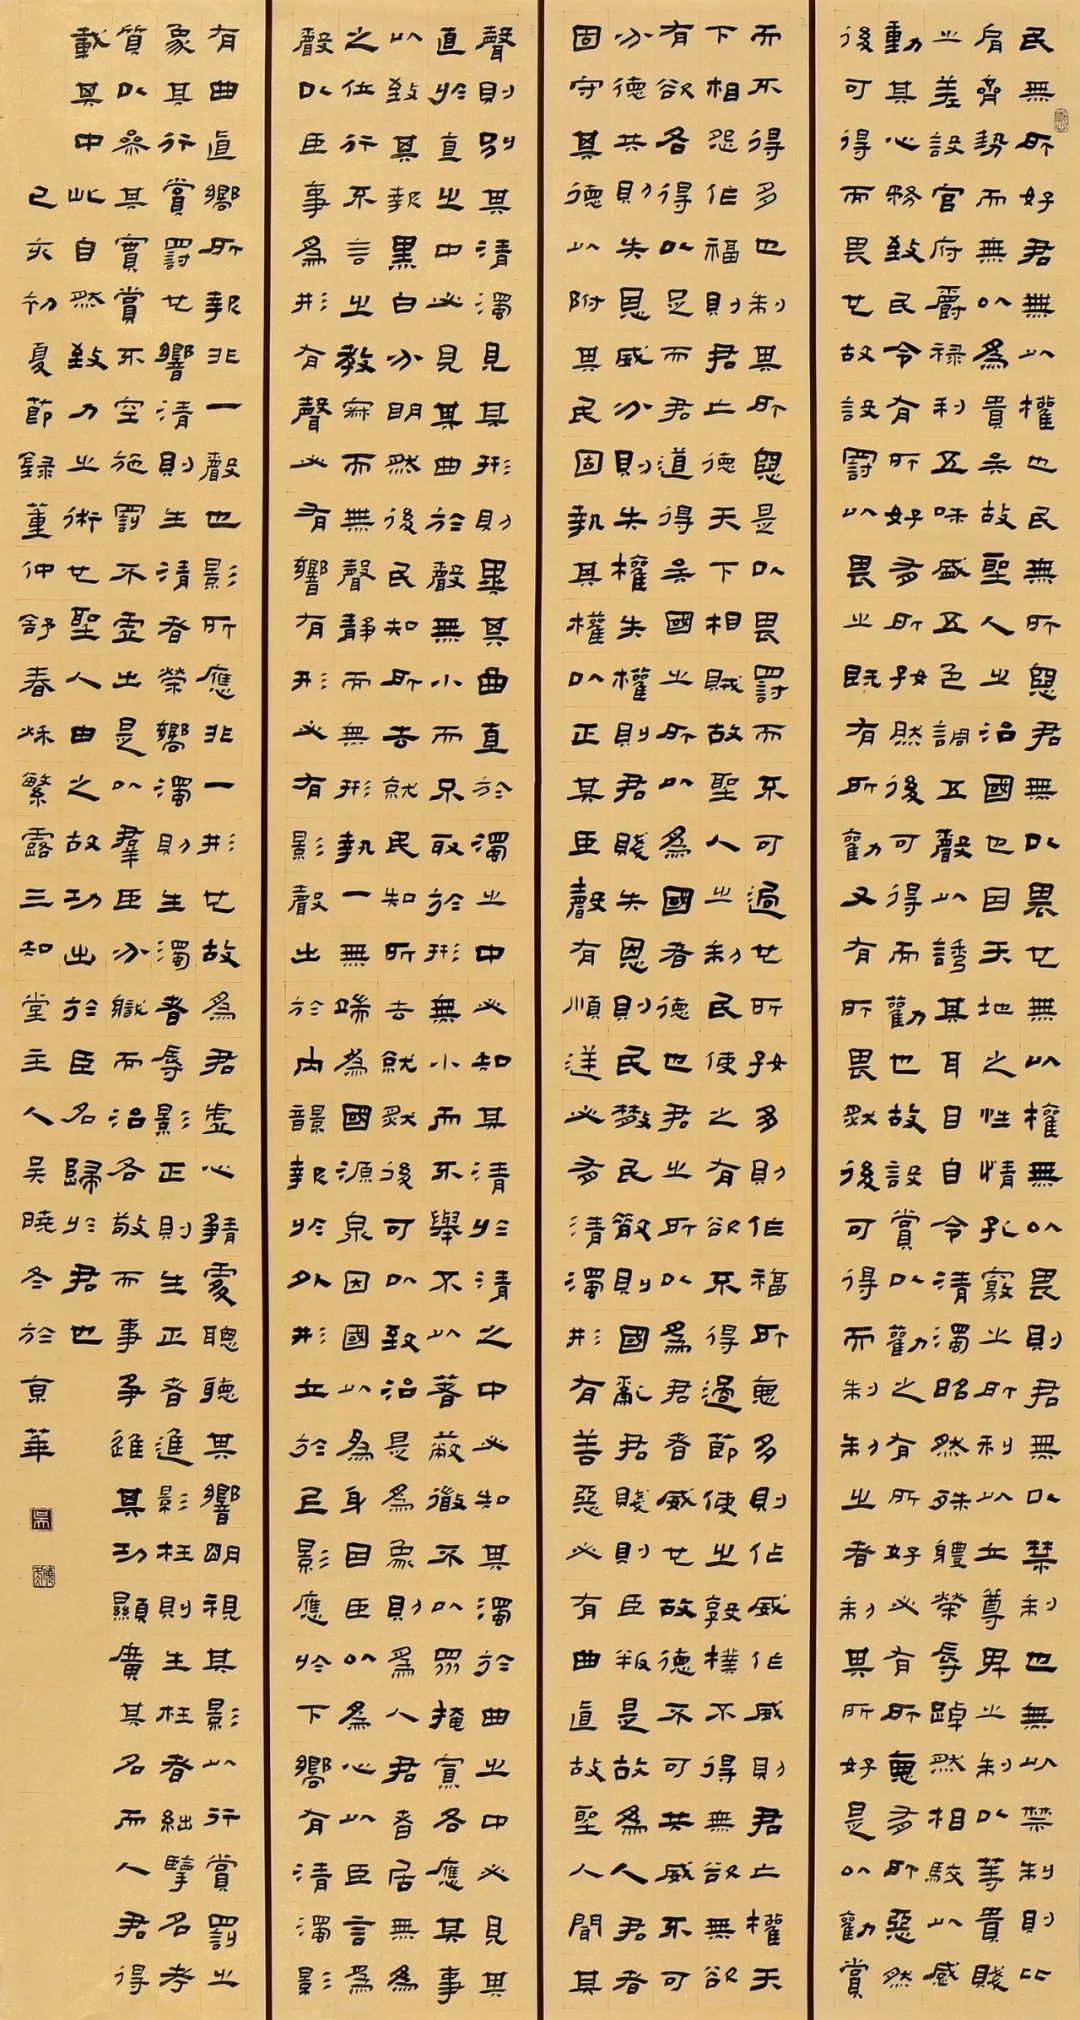 民無所好君無以權也民無所惡君無以畏也無以權無以畏則君無以禁制也無以禁制則比
肩齊勢而無以為貴矣故聖人之治國也因天地之性情孔竅之所利以立尊卑之制以等貴賤
之差設官府爵祿利五味盛五色調五聲以誘其耳目自令清濁昭然殊體榮辱踔然相駮以感
動其心務致民令有所好多所好然後可得而勸也故設賞以勸之有所好必有所惡多所惡然
後可得而畏也故設罰以畏之既有所勸又有所畏然後可得而制制之者制其所好是以勸賞
而不得多也制其所惡是以畏罰而不可過也所好多則作福所惡多則作威作威則君亡權天
下相怨作福則君亡德天下相賊故聖人之制民使之有欲不得過節使之敦樸不得無欲無欲
有欲各得以足而君道得矣國之所以為國者德也君之所以為君者威也故德不可共威不可
分德共則失恩威分則失權失權則君賤失恩則民散民散則國亂君賤則臣叛是故為人君者
固守其德以附其民固執其權以正其臣聲有順逆必有清濁形有善惡必有曲直故聖人聞其
聲則別其清濁見其形則異其曲直於濁之中必知其清於清之中必知其濁於曲之中必見其
直於直之中必見其曲於聲無小而不取於形無小而不舉不以著蔽微不以眾掩寡各應其事
以致其報黑白分明然後民知所去就民知所去就然後可以致治是為象則為人君者居無為
之位行不言之教寂而無聲靜而無形執一無端為國源泉因國以為身因臣以為心以臣言為
聲以臣事為形有聲必有響有形必有影聲出於內響報於外形立於上影應於下響有清濁影
有曲直響所報非一聲也影所應非一形也故為君虛心靜處聰聽其響明視其影以行賞罰之
象其行賞罰也響清則生清者榮響濁則生濁者辱影正則生正者進影枉則生枉者絀擥名考
質以參其實賞不空施罰不虛出是以群臣分職而治各敬而事爭進其功顯廣其名而人君得
載其中此自然致力之術也聖人由之故功出於臣名歸於君也
己亥初夏節錄董仲舒春秋繁露三知堂主人吳曉冬於京華